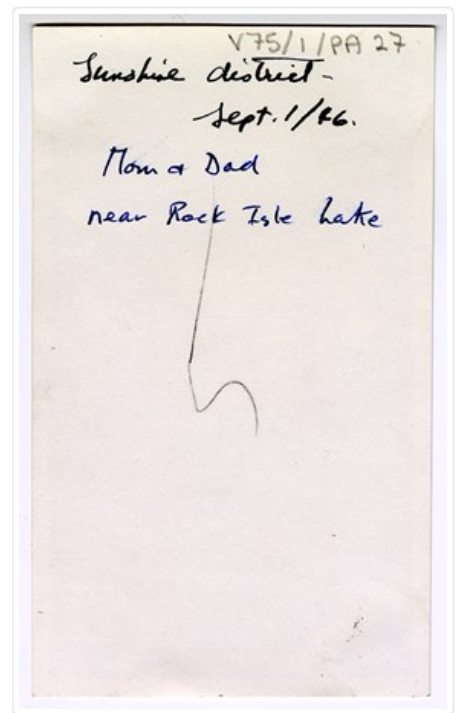 V75/1/PA 27
Sunshine district -
Sept. 1/46.
Mom & Dad
near Rock Isle Lake